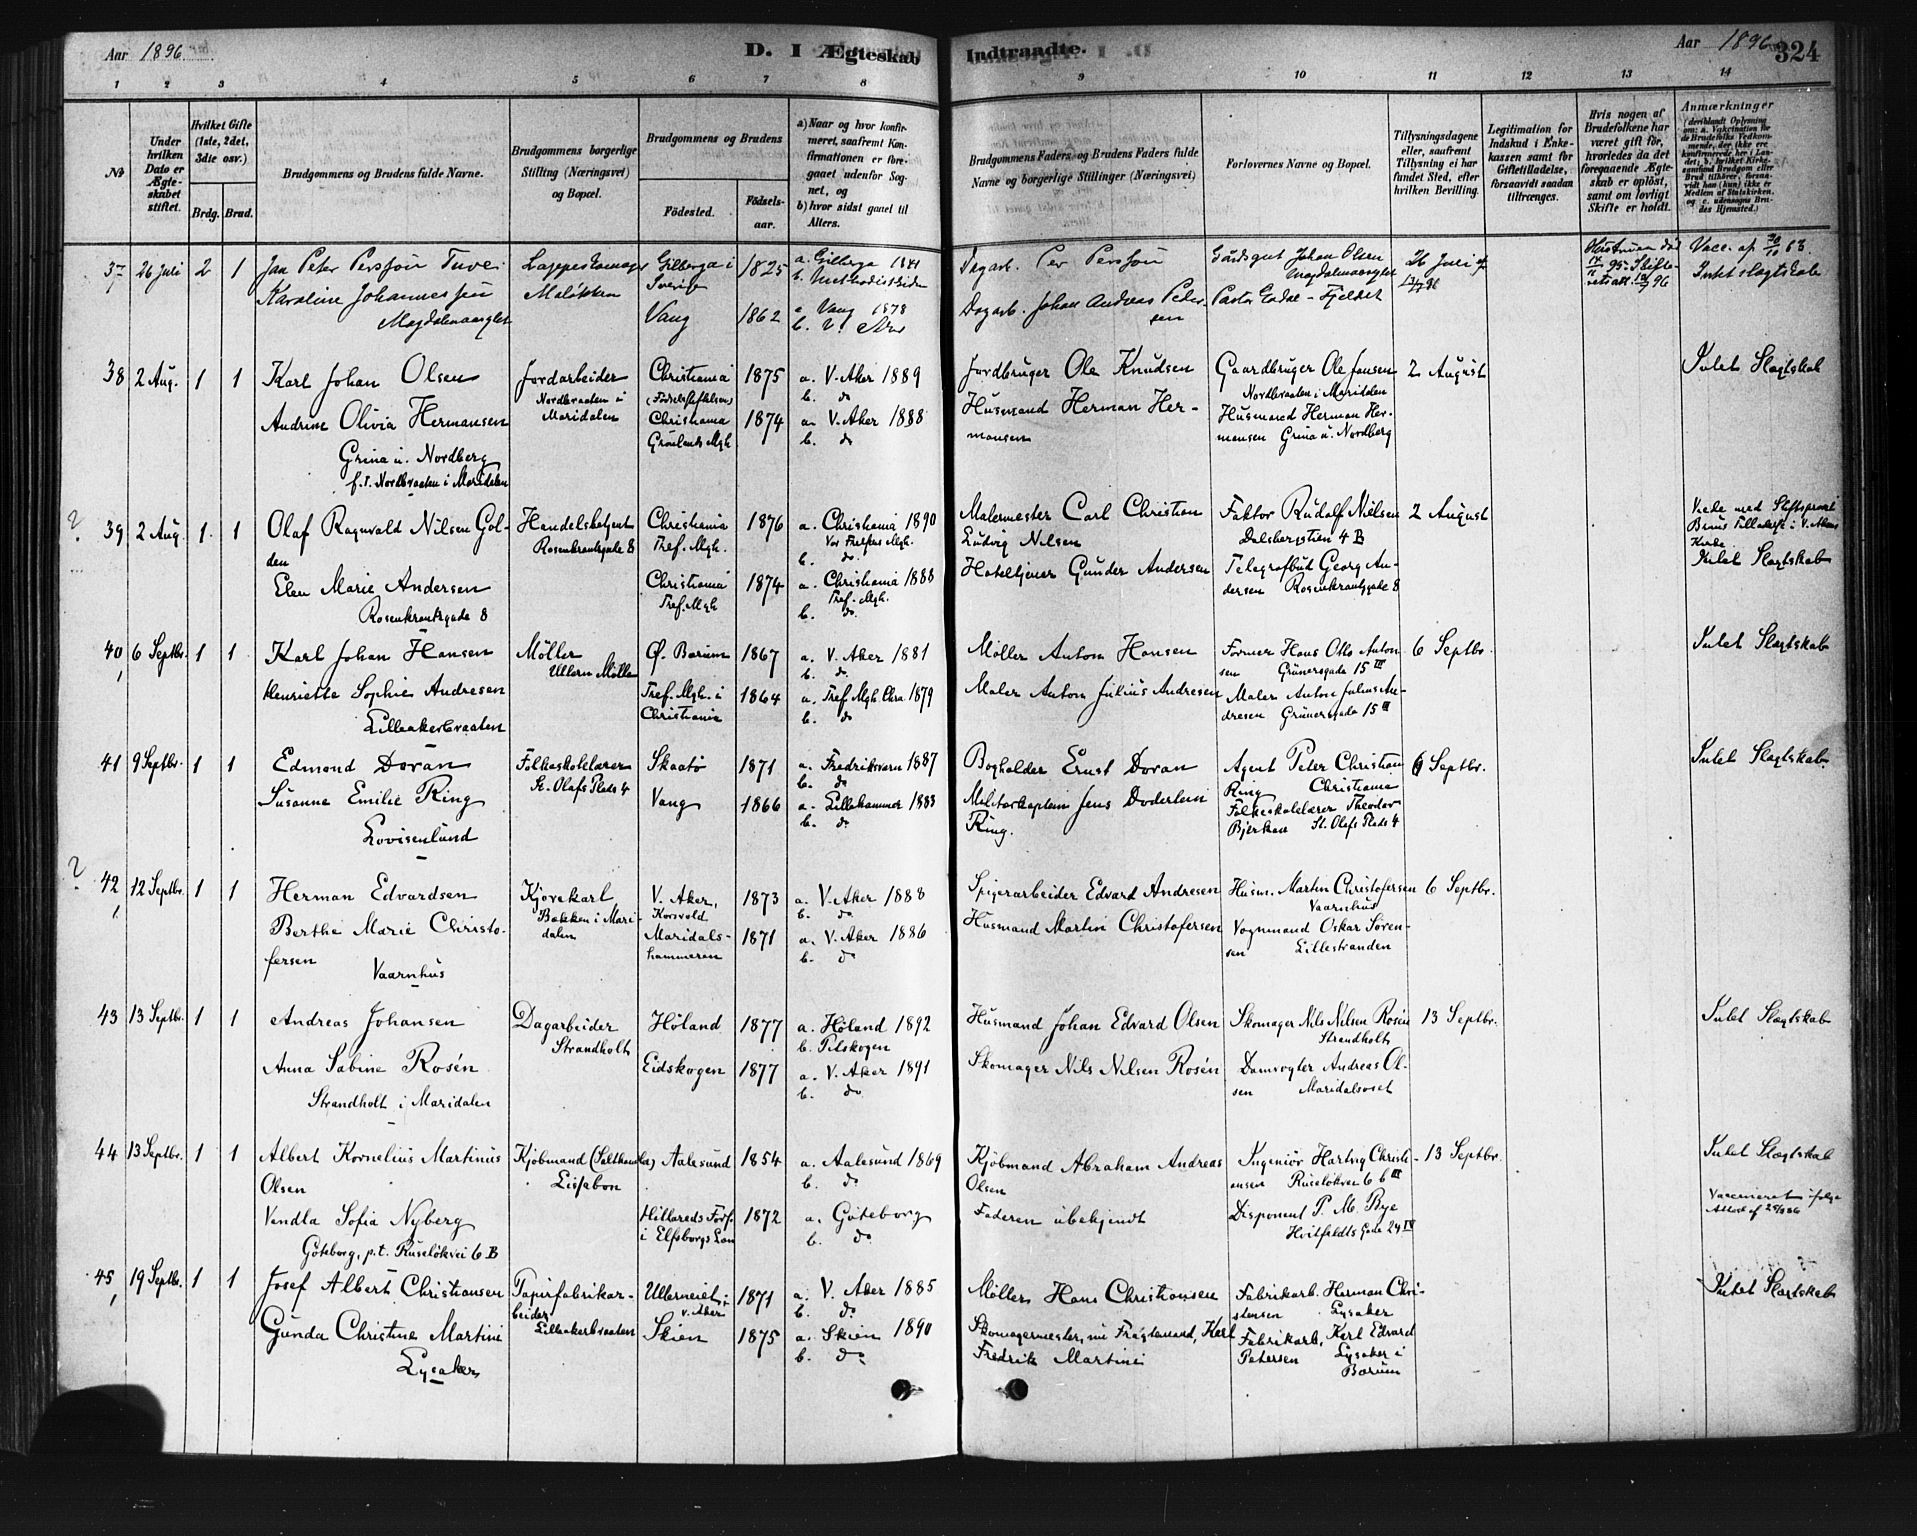 Aar 1896.
D. I Ægteskab
Indtraadte.
Aar 1896
324
1 2 3 4 5 6 7 8 9 10 11 12 13 14
No
Under hvilken Dato er Ægteskabet stiftet.
Hvilket Gifte (1ste, 2det, 3die osv.)
Brdg. Brud.
Brudgommens og Brudens fulde Navne.
Brudgommens borgerlige Stilling (Næringsvei) og Bopæl.
Brudgommens og Brudens
Födested.
Födselsaar.
a) Naar og hvor konfirmeret, saafremt Konfirmationen er foregaaet udenfor Sognet, og
b) hvor sidst gaaet til Alters.
Brudgommens Faders og Brudens Faders fulde Navne og borgerlige Stillinger (Næringsvei)
Forlovernes Navne og Bopæl.
Tillysningsdagene eller, saafremt Tillysning ei har fundet Sted, efter hvilken Bevilling.
Legitimation for Indskud i Enkekassen samt for Giftetilladelse, forsaavidt saadan tiltrænges.
Hvis nogen af Brudefolkene har været gift før, hvorledes da det foregaaende Ægteskab er opløst, samt om lovligt Skifte er holdt.
Anmærkninger
37 26 Juli 2 1
Jan Peter Persson Tuve
Karoline Johannessen
Magdalenaanglet
Lappeskomager
Maløkken
Gilberga i
Sverige
1825
a. Gilberga 1841
Vang 1862
a. Vang 1878
Dagarb. Per Persson
Dagarb. Johan Andreas Petersen
Gårdsgut Johan Olsen
26 Juli
Intet slægtskab
38 2 Aug. 1 1
Karl Johan Olsen
Andrine Olivia Hermansen
Grina u. Nordberg
f.t. Nordbraaten i Maridalen
Jordarbeider
Nordbraaten i
Maridalen
Christiania
(Fødselsstiftelsen)
1875
a. V. Aker 1889
b. do
Christiania
Grønlands Mgh.
1874
a. V. Aker 1888
b. do
Jordbruger Ole Knudsen
Husmand Herman Hermansen
Gaardbruger Ole Jansen
Nordbraaten i Maridalen
Husmand Herman Hermansen Grina u. Nordberg
2 August
Intet Slægtskab
39 2 Aug. 1. 1
Olaf Ragnvald Nilsen Golden
Elen Marie Andersen
Rosenkrantzgade 8
Handelsbetjent
Rosenkrantzgade 8
Christiania
Tref. Mgh.
1876
a. Christiania 1890
Vor Frelsers Mgh.
b. do
Christiania
Tref. Mgh
1874
a. Christiania 1888
Tref. Mgh.
b. do
Malermester Carl Christian
Ludvig Nilsen
Hoteltjener Gunder Andersen
Faktor Rudolf Nielsen
Dalsbergstien 4 B
Telegrafbud Georg Andersen Rosenkrantzgade 8
2 August
Intet Slægtskab
40 6 Septbr. 1 1
Karl Johan Hansen
Henriette Sophie Andresen
Lilleakerbraaten
Møller
Ullern Mølle
Ø. Bærum 1867
a. V. Aker 1881
b. do
Tref. Mgh. i
Christiania
1864
a. Tref. Mgh. Chra. 1879
b. do
Møller Anton Hansen
Maler Anton Julius Andresen
Former Hans Otto Antonsen Grünersgade 15 III
Maler Anton Julius Andresen Grünersgade 15 III
6 Septbr.
Intet Slægtskab
41 9 Septbr. 1 1
Edmond Doran
Susanne Emilie Ring
Lovisenlund
Folkeskolelærer
St. Olafs Plads 4
Skaatø 1871
a. Fredriksværn 1887
b. do
Vang 1866
a. Lillehammer 1883
b. do
Bogholder Ernst Doran
Militærkaptein Jens Doderlein
Ring.
Agent Peter Christian
Ring Christiania
Folkeskolelærer Theodor
Bjerkan St. Olafs Plads 4
6 Septbr.
Intet Slægtskab.
42 12 Septbr. 1 1
Herman Edvardsen
Berthe Marie Christofersen
Vaarnhus
Kjørekarl
Bakken i Maridalen
V. Aker,
Korsvold
1873
a. V. Aker 1888
b. do
Maridalshammeren
1871
a. V. Aker 1886
b. do
Spigerarbeider Edvard Andresen
Husmand Martin Christofersen
Husm. Martin Christofersen
Vaarnhus
Vognmand Oskar Sørensen Lillestranden
6 Septbr.
43 13 Septbr. 1 1
Andreas Johansen
Anna Sabine Rosén
Strandholt i Maridalen
Dagarbeider
Strandholt
Høland 1877
a. Høland 1892
b. Pilskogen
Eidskogen 1877
a. V. Aker 1891
b. do
Husmand Johan Edvard Olsen
Skomager Nils Nilsen Rosén
Skomager Nils Nilsen Rosén
Strandholt
Damvogter Andreas Olsen Maridalsoset
13 Septbr.
Intet Slægtskab
44 13 Septbr. 1 1
Albert Kornelius Martinus
Olsen
Vendla Sofia Nyberg
Göteborg, p.t. Ruseløkvei 6 B
Kjøbmand
Lissabon
Aalesund 1854
a. Aalesund 1869
b. do
Hillareds Fors.
i Elfsborgs Län
1872
a. Göteborg
b. do
Kjøbmand Abraham Andreas
Olsen
Faderen ubekjendt
Ingeniør Hartvig Christiansen Ruseløkvei 6 b III
Disponent P. M. Bye
Hvitfeldts Gade 24 IV
13 Septbr.
Intet Slægtskab
Vaccineret ifølge
45 19 Septbr. 1 1
Josef Albert Christiansen
Gunda Christine Martini
Lysaker
Papirfabrikarbeider
Lilleakerbraaten
Ullerneiet i
V. Aker
1871
a. V. Aker 1885
b. do
Skien 1875
a. Skien 1890
b. do
Møller Hans Christiansen
Skomagermester, nu Fragtemand, Karl
Fredrik Martini
Fabrikarb. Herman Christensen Lysaker
Fabrikarb. Karl Edvard
Petersen Lysaker i
Bærum
Intet Slægtskab